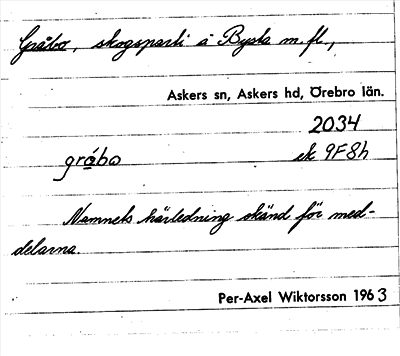 Gråbo, skogsparti å Bysta m.fl.,
Askers sn, Askers hd, Örebro län.
2034
gråbo ek 9F8h
Namnets härledning okänd för med-
delarna.
Per-Axel Wiktorsson 1963